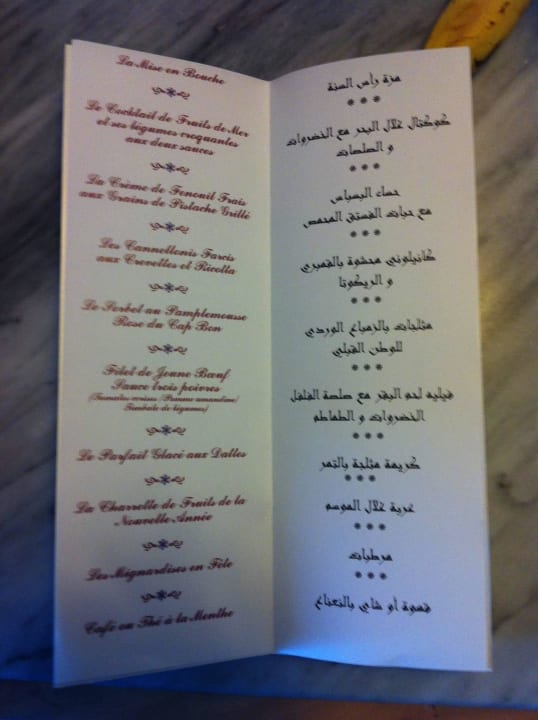 La Mise en Bouche
Le Cocktail de Fruits de Mer
et ses légumes croquants
aux deux sauces
La Crème de Fenouil Frais
aux Grains de Pistache Grillé
Les Cannellonis Farcis
aux Crevettes et Ricotta
Le Sorbet au Pamplemousse
Rose du Cap Bon
Filet de Jeune Bœuf
Sauce trois poivres
(Tomates cerises / Pomme amandine /
Timbale de légumes)
Le Parfait Glacé aux Dattes
La Charrette de Fruits de la
Nouvelle Année
Les Mignardises en Fête
Café ou Thé à la Menthe
مزة رأس السنة
***
كوكتال غلال البحر مع الخضروات
و الصلصات
***
حساء البسباس
مع حبات الفستق المحمص
***
كانيلوني محشوة بالقمبري
و الريكوتا
***
مثلجات بالزمباع الوردي
للوطن القبلي
***
فيليه لحم البقر مع صلصة الفلفل
الخضروات و الطماطم
***
كريمة مثلجة بالتمر
***
عربة غلال الموسم
***
مرطبات
***
قهوة أو شاي بالنعناع